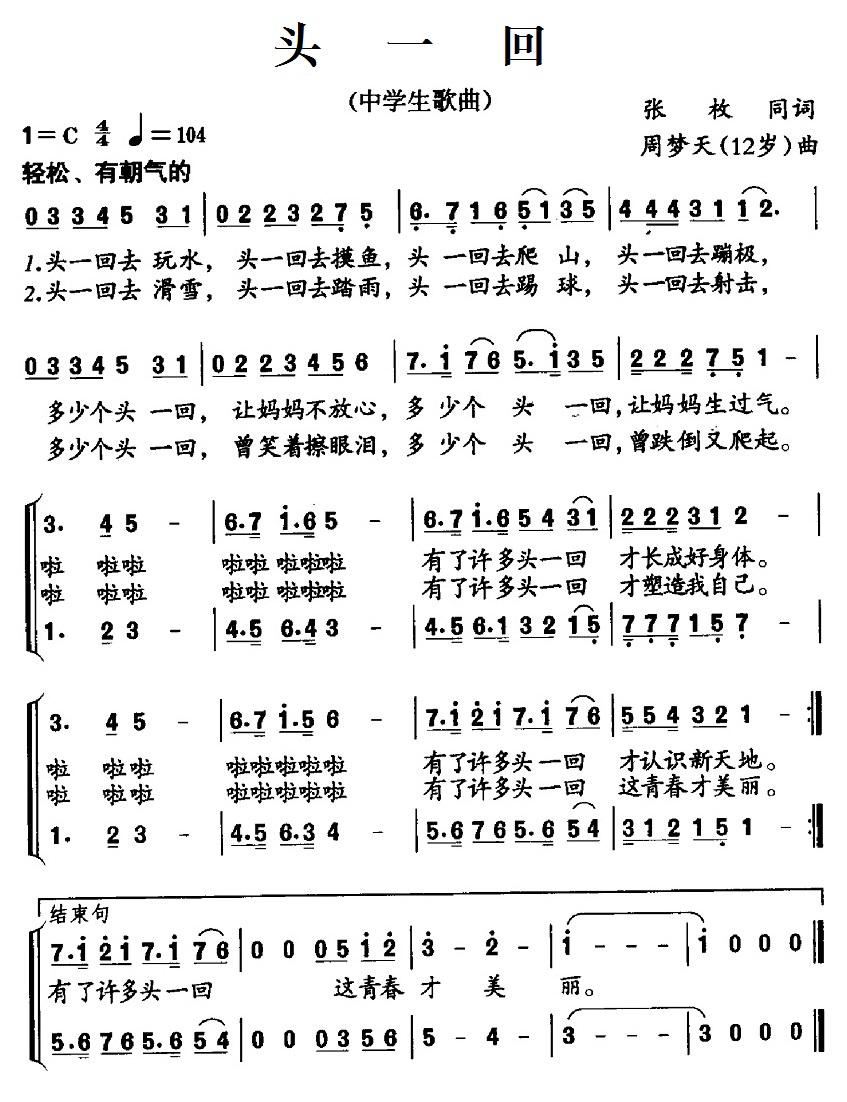 头一回
(中学生歌曲)
张枚同词
1=C 4/4 ♩=104
周梦天(12岁)曲
轻松、有朝气的
0 3 3 4 5 3 1 | 0 2 2 3 2 7 5 | 6. 7 1 6 5 1 3 5 | 4 4 4 3 1 1 2. |
1.头一回去 玩水, 头一回去摸鱼, 头 一回去爬 山, 头一回去蹦极,
2.头一回去 滑雪, 头一回去踏雨, 头 一回去踢 球, 头一回去射击,
0 3 3 4 5 3 1 | 0 2 2 3 4 5 6 | 7. i 7 6 5. i 3 5 | 2 2 2 7 5 1 - |
多少个头 一回, 让妈妈不放心, 多 少个 头 一回, 让妈妈生过气。
多少个头 一回, 曾笑着擦眼泪, 多 少个 头 一回, 曾跌倒又爬起。
3. 4 5 - | 6. 7 i. 6 5 - | 6. 7 i. 6 5 4 3 1 | 2 2 2 3 1 2 - |
啦 啦啦 啦啦 啦啦啦 有了许多头一回 才长成好身体。
啦 啦啦 啦啦 啦啦啦 有了许多头一回 才塑造我自己。
1. 2 3 - | 4. 5 6. 4 3 - | 4. 5 6. 1 3 2 1 5 | 7 7 7 1 5 7 - |
3. 4 5 - | 6. 7 i. 5 6 - | 7. i 2 i 7. i 7 6 | 5 5 4 3 2 1 - :|
啦 啦啦 啦啦啦啦啦 有了许多头一回 才认识新天地。
啦 啦啦 啦啦啦啦啦 有了许多头一回 这青春才美丽。
1. 2 3 - | 4. 5 6. 3 4 - | 5. 6 7 6 5. 6 5 4 | 3 1 2 1 5 1 - :|
结束句
7. i 2 i 7. i 7 6 | 0 0 0 5 i 2 | 3 - 2 - | i - - - | i 0 0 0 |
有了许多头一回 这青春 才 美 丽。
5. 6 7 6 5. 6 5 4 | 0 0 0 3 5 6 | 5 - 4 - | 3 - - - | 3 0 0 0 |